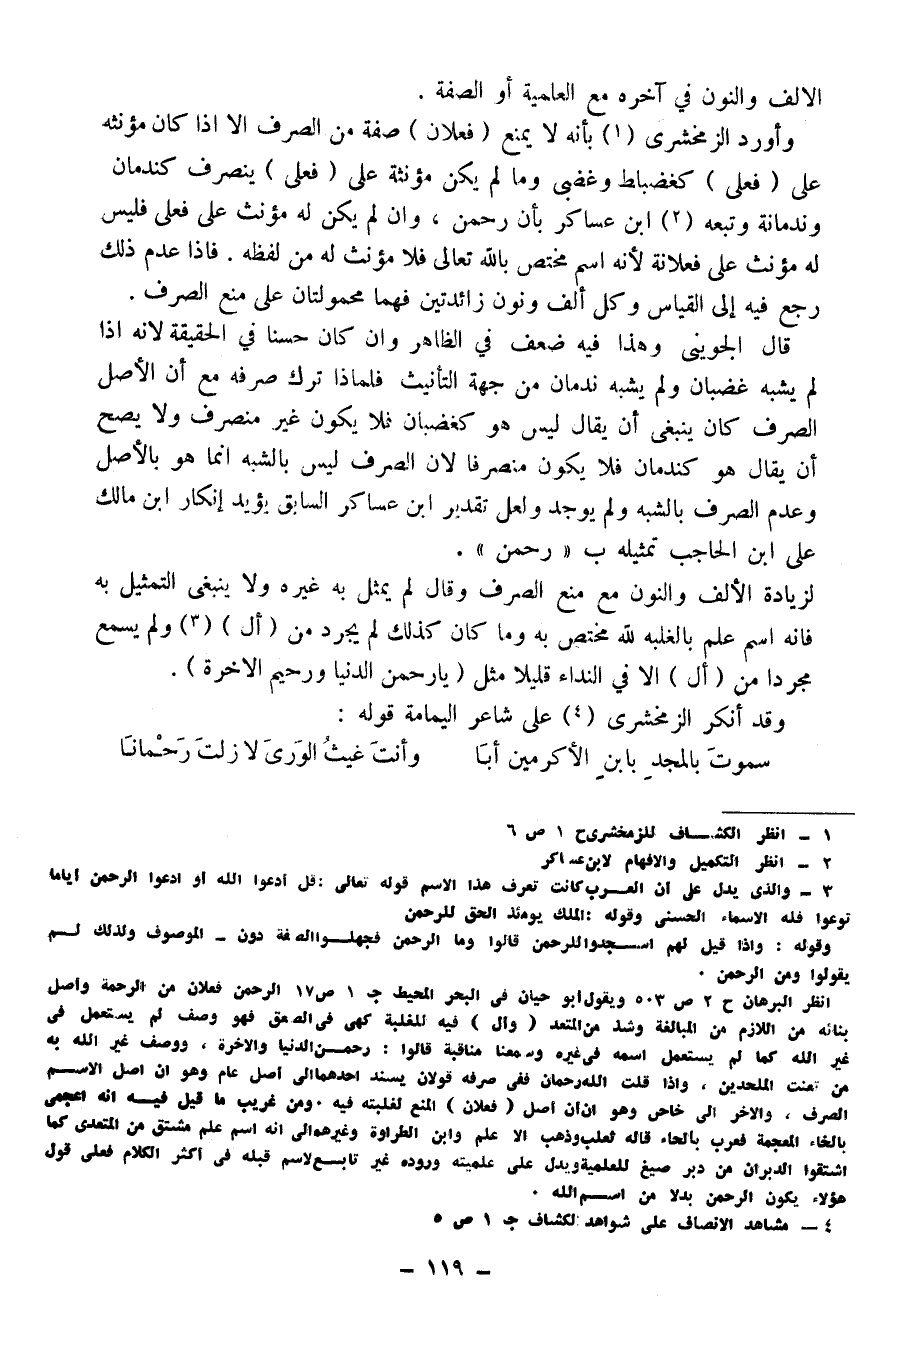 الالف والنون في آخره مع العلمية أو الصفة .
وأورد الزمخشرى (١) بأنه لا يمنع ( فعلان ) صفة من الصرف الا اذا كان مؤنثه
على ( فعلى ) كغضباط وغضبى وما لم يكن مؤنثة على ( فعلى ) ينصرف كندمان
وندمانة وتبعه (٢) ابن عساكر بأن رحمن ، وان لم يكن له مؤنث على فعلى فليس
له مؤنث على فعلانة لأنه اسم مختص بالله تعالى فلا مؤنث له من لفظه . فاذا عدم ذلك
رجع فيه إلى القياس وكل ألف ونون زائدتين فهما محمولتان على منع الصرف .
قال الجوينى وهذا فيه ضعف في الظاهر وان كان حسنا في الحقيقة لانه اذا
لم يشبه غضبان ولم يشبه ندمان من جهة التأنيث فلماذا ترك صرفه مع أن الأصل
الصرف كان ينبغى أن يقال ليس هو كغضبان فلا يكون غير منصرف ولا يصح
أن يقال هو كندمان فلا يكون منصرفا لان الصرف ليس بالشبه انما هو بالأصل
وعدم الصرف بالشبه ولم يوجد ولعل تقدير ابن عساكر السابق يؤيد إنكار ابن مالك
على ابن الحاجب تمثيله ب « رحمن » .
لزيادة الألف والنون مع منع الصرف وقال لم يمثل به غيره ولا ينبغى التمثيل به
فانه اسم علم بالغلبه لله مختص به وما كان كذلك لم يجرد من ( أل ) (٣) ولم يسمع
مجردا من ( أل ) الا في النداء قليلا مثل ( يارحمن الدنيا ورحيم الاخرة ) .
وقد أنكر الزمخشرى (٤) على شاعر اليمامة قوله :
سموتَ بالمجدِ يابنِ الأكرمين أبَا وأنتَ غيثُ الوَرىَ لازلتَ رَحْمانَا
١ ــ انظر الكشاف للزمخشرى ح ١ ص ٦
٢ ــ انظر التكميل والافهام لابن عساكر
٣ ــ والذى يدل على أن العرب كانت تعرف هذا الاسم قوله تعالى : قل أدعوا الله أو ادعوا الرحمن أياما
توعوا فله الاسماء الحسنى وقوله : الملك يومئذ الحق للرحمن
وقوله : واذا قيل لهم اسجدوا للرحمن قالوا وما الرحمن فجهلوا الصفة دون ــ الموصوف ولذلك لم
يقولوا ومن الرحمن .
انظر البرهان ح ٢ ص ٥٠٣ ويقول أبو حيان فى البحر المحيط جـ ١ ص ١٧ الرحمن فعلان من الرحمة وأصل
بنائه من اللازم من المبالغة وشذ من المتعد ( وأل ) فيه للغلبة كهى فى الصعق فهو وصف لم يستعمل فى
غير الله كما لم يستعمل اسمه فى غيره وسمعنا مناقبة قالوا : رحمن الدنيا والاخرة ، ووصف غير الله به
من تعنت الملحدين ، واذا قلت الله رحمان ففى صرفه قولان يسند احدهما الى أصل عام وهو ان اصل الاسم
الصرف ، والاخر الى خاص وهو ان أن أصل ( فعلان ) المنع لغلبته فيه . ومن غريب ما قيل فيه انه اعجمى
بالخاء المعجمة فعرب بالحاء قاله ثعلب وذهب الا علم وابن الطراوة وغيرهم الى انه اسم علم مشتق من المتعدى كما
اشتقوا الدبران من دبر صيغ للعلمية ويدل على علميته وروده غير تابع لاسم قبله فى أكثر الكلام فعلى قول
هؤلاء يكون الرحمن بدلا من اسم الله .
٤ ــ مشاهد الانصاف على شواهد الكشاف جـ ١ ص ٥
ــ ١١٩ ــ